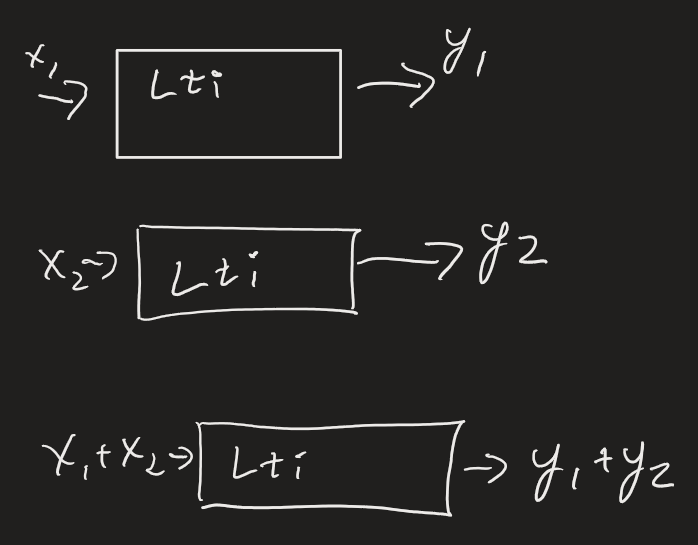 x₁ → Lti → y₁
x₂ → Lti → y2
x₁+x₂ → Lti → y₁+y₂